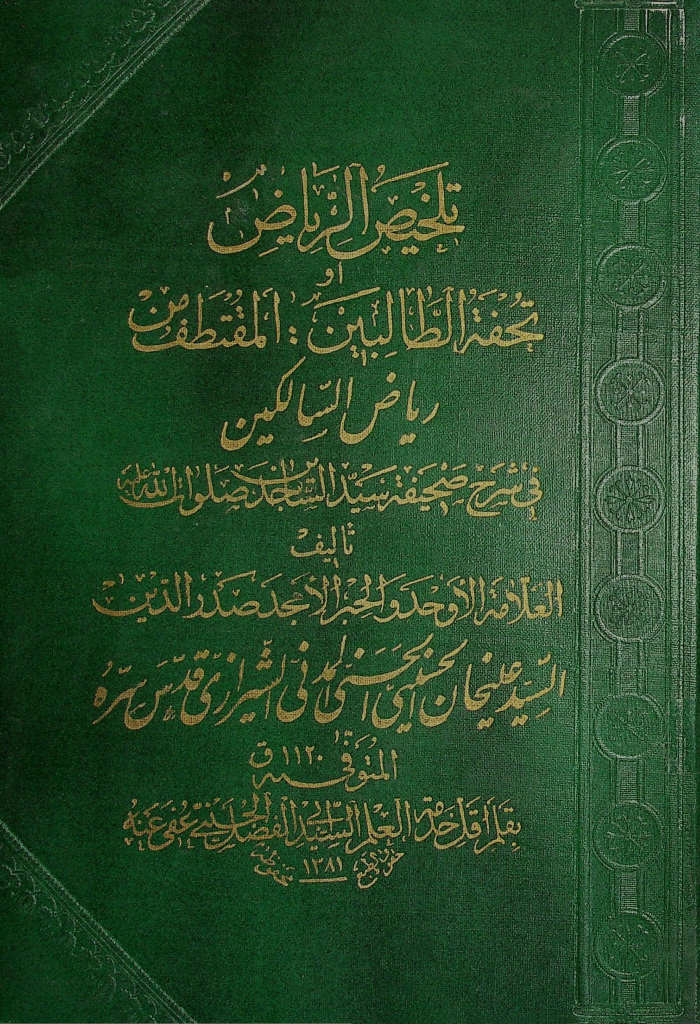 تلخيص الرِّياض
أو
تحُفة الطَّالِبين : المقتطف من
رياض السّالكين
في شرح صحيفة سيّد السّاجدين صلوات الله عليه
تأليف
العلّامة الأوحد والحبر الأمجد صدر الدّين
السّيّد عليخان الحسيني الحسني المدني الشّيرازي قدّس سرّه
المتوفّى سنة ١١٢٠ ق
بقلم اقل خدمة العلم السّيّد أبي الفضل الحسيني عُفي عنه
حقوق الطبع ١٣٨١ محفوظة